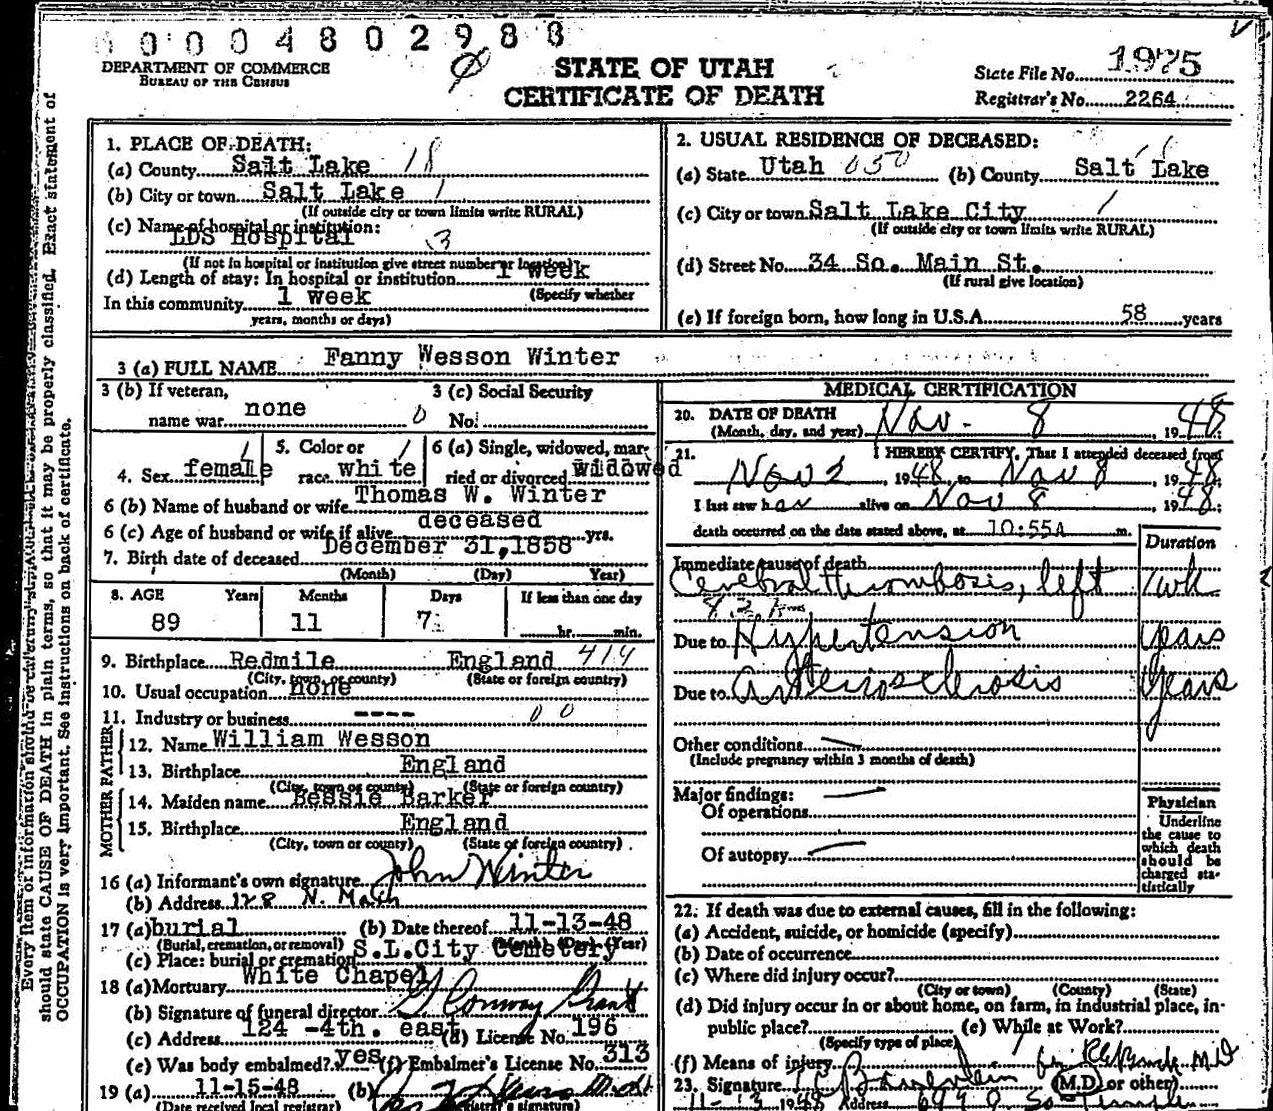 0 0 0 0 4 8 0 2 9 8 8
DEPARTMENT OF COMMERCE
BUREAU OF THE CENSUS
STATE OF UTAH
CERTIFICATE OF DEATH
State File No. 1975
Registrar's No. 2264
Every item of information should be
should state CAUSE OF DEATH in plain terms, so that it may be properly classified. Exact statement of
OCCUPATION is very important. See instructions on back of certificate.
1. PLACE OF DEATH:
(a) County Salt Lake 18
(b) City or town Salt Lake 1
(If outside city or town limits write RURAL)
(c) Name of hospital or institution:
LDS Hospital 3
(If not in hospital or institution give street number or location)
(d) Length of stay: In hospital or institution 1 week
(Specify whether
In this community 1 week
years, months or days)
2. USUAL RESIDENCE OF DECEASED:
(a) State Utah 050 (b) County Salt Lake
(c) City or town Salt Lake City 1
(If outside city or town limits write RURAL)
(d) Street No. 34 So. Main St.
(If rural give location)
(e) If foreign born, how long in U.S.A. 58 years
3 (a) FULL NAME Fanny Wesson Winter
3 (b) If veteran,
name war none 0
3 (c) Social Security
No.
4. Sex female 1
5. Color or
race white 1
6 (a) Single, widowed, mar-
ried or divorced widowed
6 (b) Name of husband or wife Thomas W. Winter
6 (c) Age of husband or wife if alive deceased yrs.
7. Birth date of deceased December 31, 1858
(Month) (Day) Year)
8. AGE Years Months Days If less than one day
89 11 7 hr. min.
9. Birthplace Redmile England 414
(City, town, or county) (State or foreign country)
10. Usual occupation none
11. Industry or business ---- 0 0
FATHER
12. Name William Wesson
13. Birthplace England
(City, town or county) (State or foreign country)
MOTHER
14. Maiden name Bessie Barker
15. Birthplace England
(City, town or county) (State or foreign country)
16 (a) Informant's own signature John Winter
(b) Address 128 N. Main
17 (a) burial (b) Date thereof 11-13-48
(Burial, cremation, or removal) (Month) (Day) (Year)
(c) Place: burial or cremation S.L.City Cemetery
18 (a) Mortuary White Chapel
(b) Signature of funeral director Conway
(c) Address 124 -4th. east (d) License No. 196
(e) Was body embalmed? yes (f) Embalmer's License No. 313
19 (a) 11-15-48 (b)
(Date received local registrar) signature)
MEDICAL CERTIFICATION
20. DATE OF DEATH
(Month, day, and year) Nov. 8, 1948
21. I HEREBY CERTIFY, That I attended deceased from
Nov 2, 1948, to Nov 8, 1948
I last saw her alive on Nov 8, 1948;
death occurred on the date stated above, at 10:55A m.
Duration
Immediate cause of death
Cerebral thrombosis, left 1 wk
Due to Hypertension years
Due to Arteriosclerosis years
Other conditions
(Include pregnancy within 3 months of death)
Major findings:
Of operations
Of autopsy
Physician
Underline
the cause to
which death
should be
charged sta-
tistically
22. If death was due to external causes, fill in the following:
(a) Accident, suicide, or homicide (specify)
(b) Date of occurrence
(c) Where did injury occur?
(City or town) (County) (State)
(d) Did injury occur in or about home, on farm, in industrial place, in-
public place? (e) While at Work?
(Specify type of place)
(f) Means of injury
23. Signature (M.D. or other)
11-13 1948 Address So. Temple